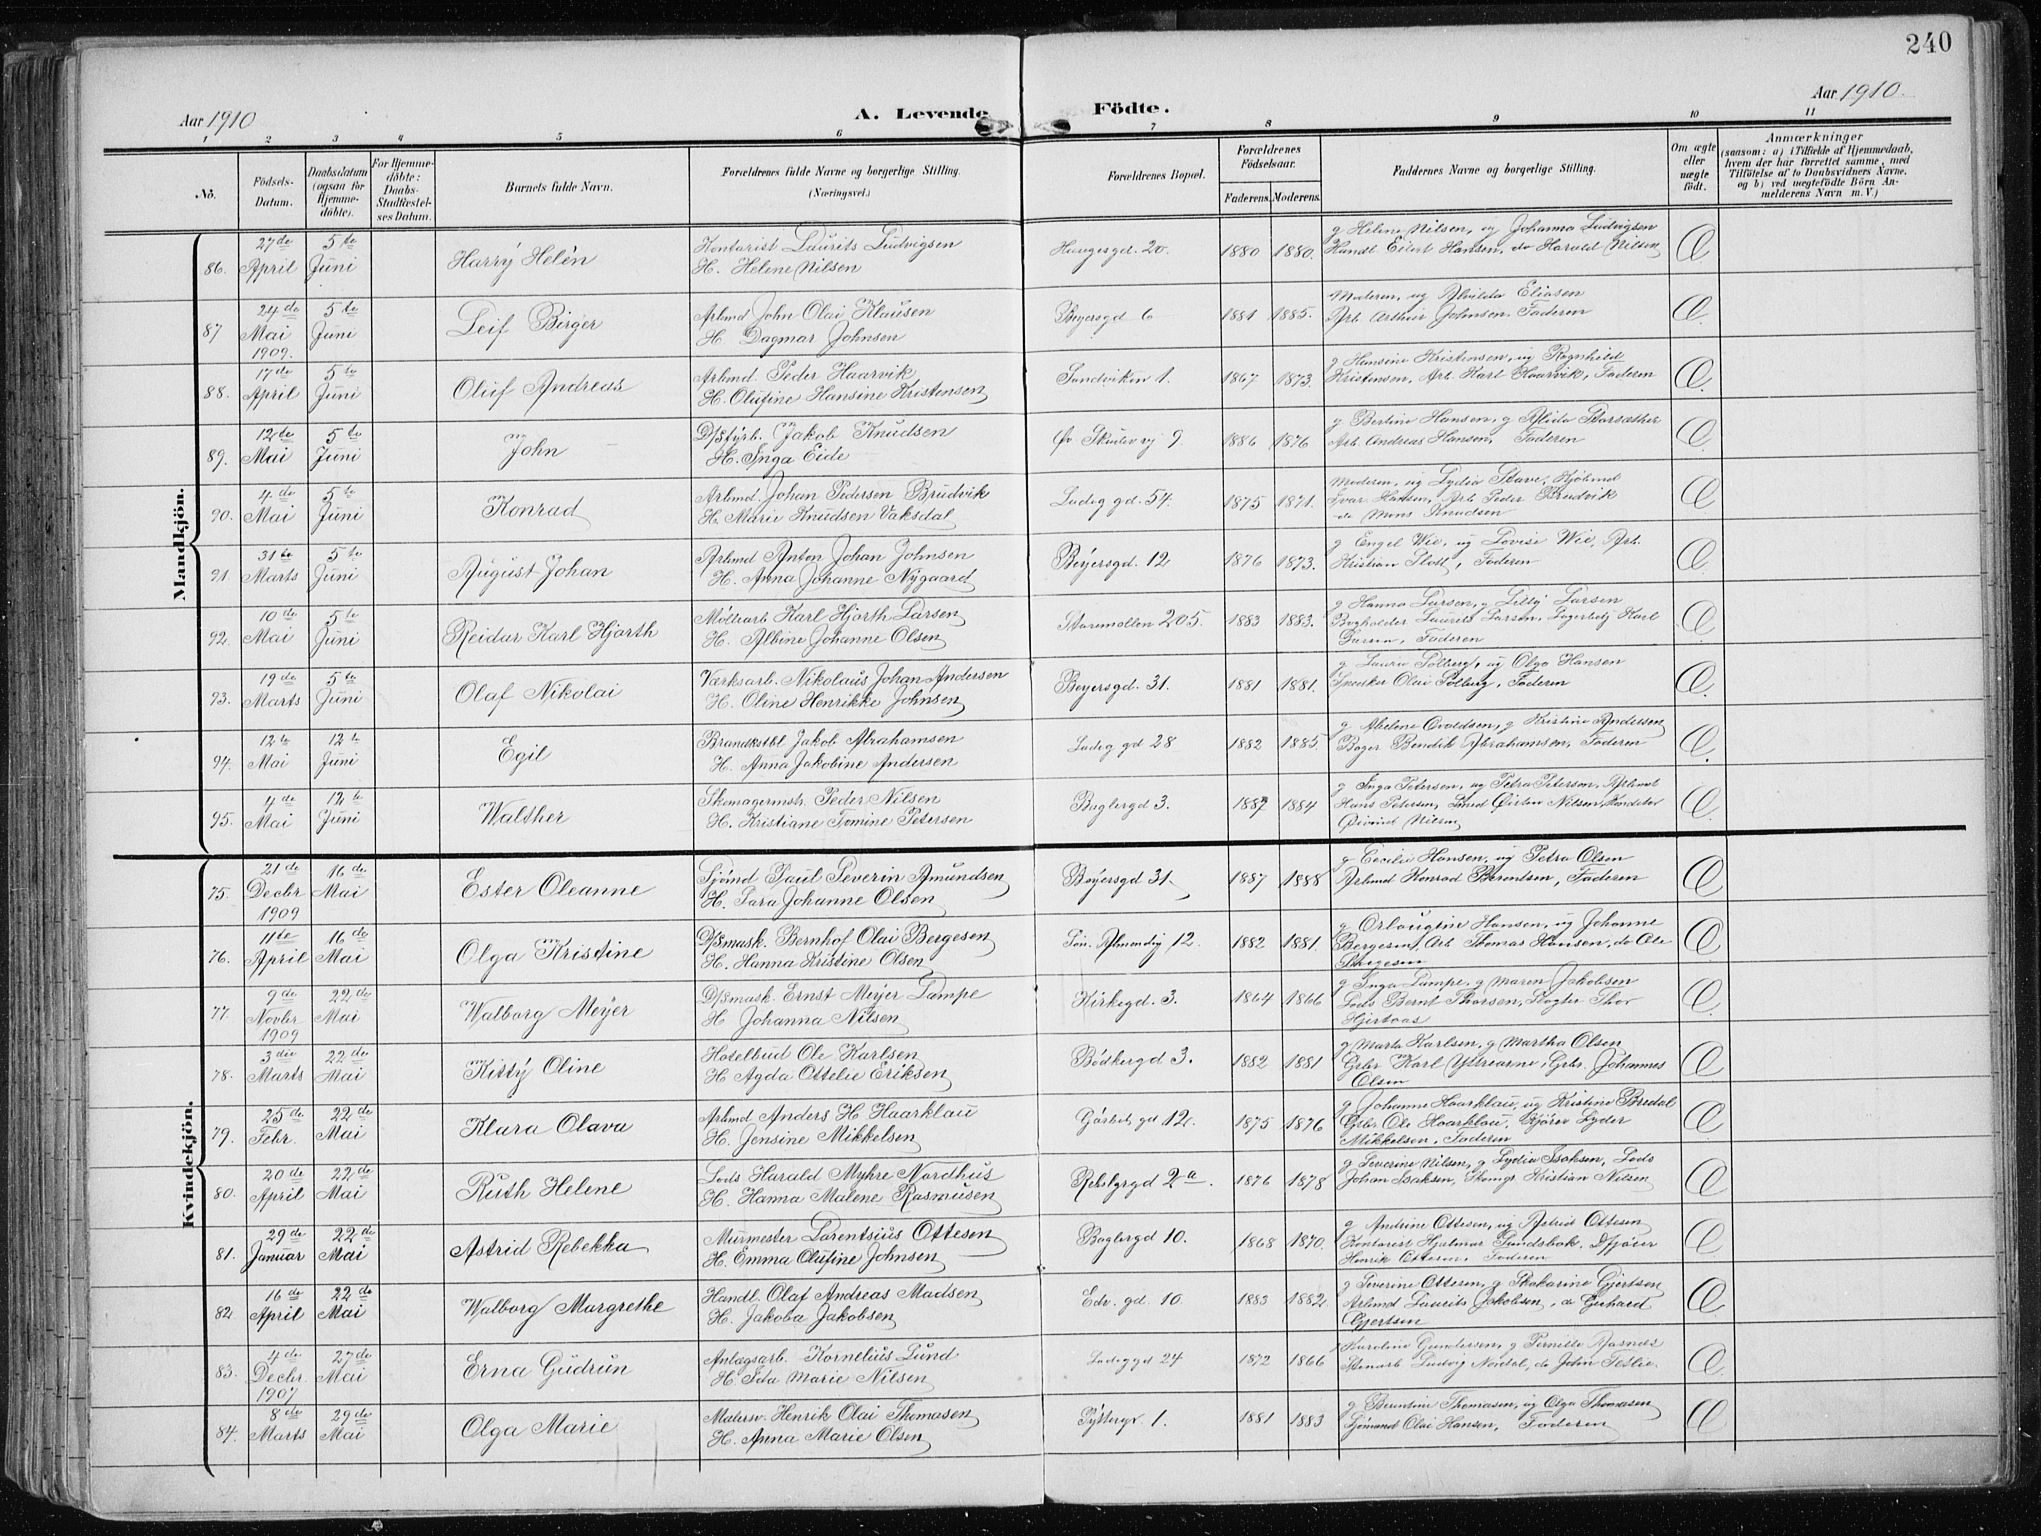 240
Aar 1910
A. Levende Födte.
Aar 1910.
1 2 3 4 5 6 7 8 9 10 11
No.
Födsels-Datum.
Daabsdatum (ogsaa for Hjemme-döbte).
For Hjemme-döbte: Daabs-Stadfæstel-ses Datum.
Barnets fulde Navn.
Forældrenes fulde Navne og borgerlige Stilling.
(Næringsvei.)
Forældrenes Bopæl.
Forældrenes Födselsaar.
Faderens. Moderens.
Faddernes Navne og borgerlige Stilling.
Om ægte eller uægte födt.
Anmærkninger
(saasom: a) i Tilfælde af Hjemmedaab,
hvem der har forrettet samme, med
Tilföielse af to Daabsvidners Navne,
og b) ved uægtefödte Börn An-
melderens Navn m. V.)
Mandkjön.
27de 5te Kontorist Laurits Ludvigsen g Helene Nilsen, ug Johanna Ludvigsen
86. April Juni Harrÿ Helén H. Helene Nilsen Haugesgd. 20. 1880 1880. Handl. Eilert Hansen, do Harald Nilsen Æ
24de 5te Arbmd John Olai Klausen Moderen, ug Alvilda Eliasen
87 Mai Juni Leif Birger H. Dagmar Johnsen Beyersgd 6 1881 1885. Arb. Arthur Johnsen. Faderen Æ
1909.
17de 5te Arbmd. Peder Haarvik g Hansine Kristensen, ug Ragnhild
88. April Juni Oluf Andreas H. Olufine Hansine Kristensen Sandviken 1. 1867 1873. Kristensen, Arb. Karl Haarvik, Faderen Æ
12te 5te D/Styrb. Jakob Knudsen g Bertine Hansen, g Alida Storsæther
89. Mai Juni John H. Inga Eide Øv. Skudevig 9 1886 1876 Arb. Andreas Hansen, Faderen Æ
4de 5te Arbmd. Johan Pedersen Brudvik Moderen, ug Lydia Stave, Kjøbmd
90. Mai Juni Konrad H. Marie Knudsen Vaksdal Ladeg gd. 54. 1875 1871. Ivar Hansen, Arb Peder Brudvik
do Mons Knudsen Æ
31te 5te Arbmd Anton Johan Johnsen g Engel Wie, ug Lovise Wie, Arb.
91 Marts Juni August Johan H. Anna Johanne Nÿgaard Beÿersgd. 12 1876 1873. Kristian Slott, Faderen Æ
10de 5te Møllearb Karl Hjorth Larsen g Hanna Larsen, g Lilly Larsen
92. Mai Juni Reidar Karl Hjorth H. Albine Johanne Olsen Storemøllen 205. 1883 1883. Bogholder Laurits Larsen, Lagerbetj Karl
Larsen, Faderen Æ
19de 5te Værksarb. Nikolaus Johan Andersen g Laura Solberg, ug Olga Hansen
93. Marts Juni Olaf Nikolai H. Oline Henrikke Johnsen Beyersgd. 31. 1881 1881. Snedker Olai Solberg, Faderen Æ
12te 12te Brandkstbl Jakob Abrahamsen g Abelone Osvaldsen, g Kristine Andersen
94. Mai Juni Egil H. Anna Jakobine Andersen Ladeg gd 28 1882 1885. Bager Bendik Abrahamsen, Faderen Æ
4de 12te Skomagermstr. Peder Nilsen g Inga Petersen, ug Petra Petersen, Arbmd
95. Mai Juni Walther H. Kristiane Tomine Petersen Baglergd 3. 1887 1884 Hans Petersen, Smed Øisten Nilsen, Konditor
Øivind Nilsen Æ
Kvindekjön.
21de 16de Sjømd Paul Severin Amundsen g Cecilie Hansen, ug Petra Olsen
75. Decbr. Mai Ester Oleanne H. Sara Johanne Olsen Beyersgd 31. 1887 1888 Arbmd Konrad Berentsen, Faderen Æ
1909
11te 16de D/Smask. Bernhof Olai Bergesen g Orlaugine Hansen, ug Johanne
76. April Mai Olga Kristine H. Hanna Kristine Olsen Søn. Almendig 12. 1882 1881. Bergesen, Arb Thomas Hansen, do Ole
Bergesen Æ
9de 22de D/Smask. Ernst Meÿer Lampe g Inga Lampe, g Maren Jakobsen
77. Novbr. Mai Walborg Meÿer H Johanna Nilsen Kirkegd. 3. 1864 1866 Lods Bernt Thorsen, Slagter Thor
1909 Hjertaas Æ
3die 22de Hotelbud Ole Karlsen g Marta Karlsen, g Martha Olsen
78. Marts Mai Kittÿ Oline H Agda Ottelie Eriksen Bødkergd 3. 1882 1881 Grbr Karl Yttrearne, Grbr. Johannes
Olsen Æ
25de 22de Arbmd Anders H. Haarklau g Johanne Haarklau, ug Kristine Bredal
79. Febr. Mai Klara Olava H. Jensine Mikkelsen gd 12. 1875 1876 Grbr Ole Haarklau, Kjører Lyder
Mikkelsen, Faderen Æ
20de 22de Lods Harald Myhre Nordhus g Severine Nilsen, g Lydia Isaksen, Lods
80. April Mai Ruth Helene H. Hanna Malene Rasmusen 2a. 1876 1878 Johan Isaksen, Skomgr Kristian Nilsen Æ
29de 22de Murmester Larentsius Ottesen g Andrine Ottesen, ug Astrid Ottesen
81. Januar Mai Astrid Rebekka H. Emma Olufine Johnsen Baglergd 10. 1868 1870. Kontorist Hjalmar Sundsbak,
Henrik Ottesen, Faderen Æ
16de 22de Handl. Olaf Andreas Madsen g Severine Ottesen, g Skakarine Gjertsen
82 April Mai Walborg Margrethe H. Jakoba Jakobsen Edv. gd. 10. 1883 1882 Arbmd Laurits Jakobsen, do Gerhard
Gjertsen Æ
4de 27de Anlægsarb. Kornelius Lund Karoline Gundersen, g Pernille Aasnæs
83. Decbr. Mai Erna Gudrun H Ida Marie Nilsen Ladeg gd 24 1872 1866 Stenarb Ludvig Nordal, do John Teslie. Æ
1907
8de 29de Matersv. Henrik Olai Thomasen g Berntine Thomasen, ug Olga Thomasen
84. Marts Mai Olga Marie H. Anna Marie Olsen 1. 1881 1883 Sjømand Olai Hansen, Faderen Æ